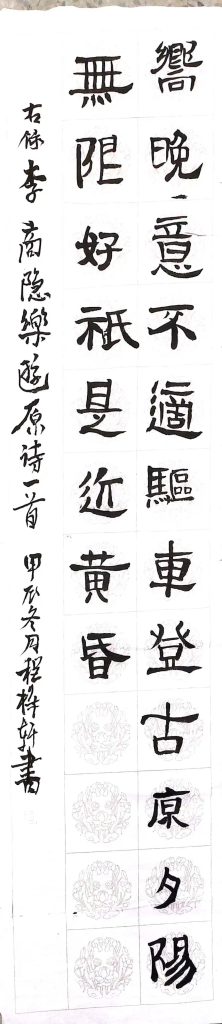 嚮晚意不適驅車登古原夕陽
無限好祇是近黄昏
右條李商隐樂遊原诗一首 甲辰冬月程梓轩書